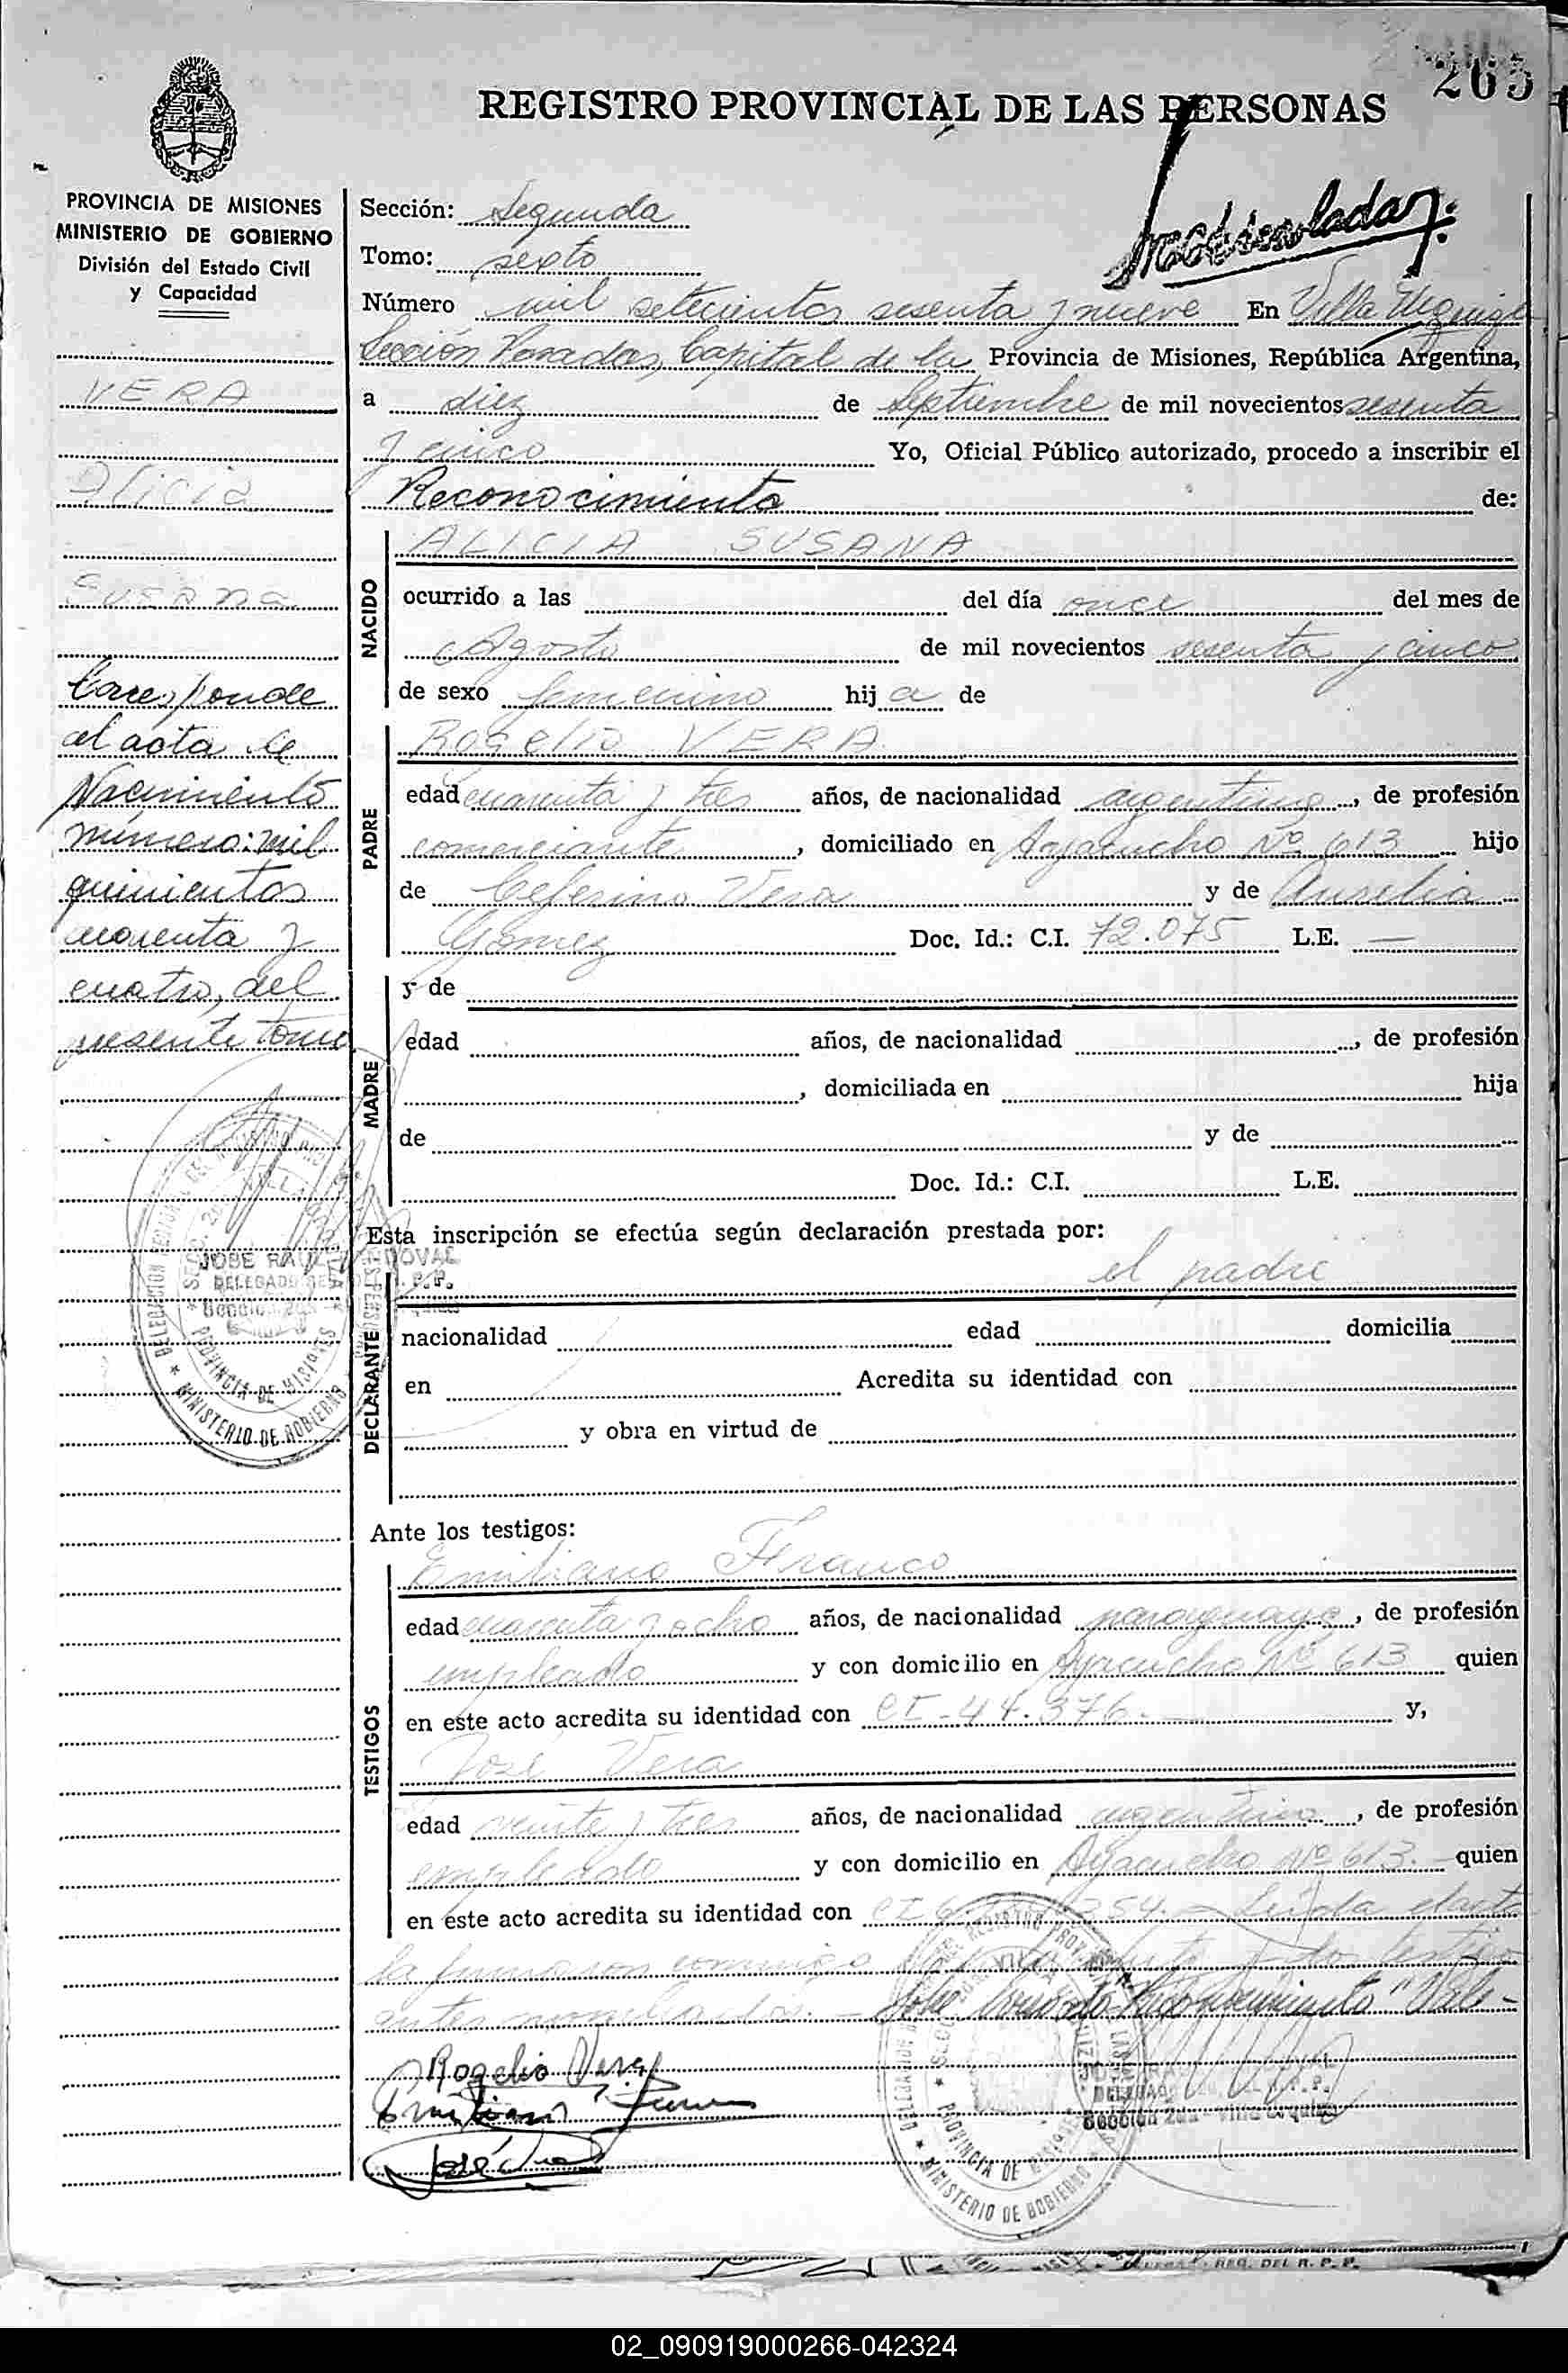 265
REGISTRO PROVINCIAL DE LAS PERSONAS
Matriculada
PROVINCIA DE MISIONES
MINISTERIO DE GOBIERNO
División del Estado Civil
y Capacidad
VERA
Alicia
Susana
Corresponde
al acta de
Nacimiento
número: mil
quinientos
cuarenta y
cuatro, del
presente tomo
Sección: Segunda
Tomo: sexto
Número mil setecientos sesenta y nueve En Villa Urquiza
Sección Posadas, Capital de la Provincia de Misiones, República Argentina,
a diez de Septiembre de mil novecientos sesenta
y cinco Yo, Oficial Público autorizado, procedo a inscribir el
Reconocimiento de:
NACIDO
ALICIA SUSANA
ocurrido a las del día once del mes de
Agosto de mil novecientos sesenta y cinco
de sexo femenino hija de
PADRE
Rogelio VERA
edad cuarenta y tres años, de nacionalidad argentino, de profesión
comerciante, domiciliado en Ayacucho Nº 613 hijo
de Ceferino Vera y de Aurelia
Gomez Doc. Id.: C.I. 72.075 L.E. —
MADRE
y de
edad años, de nacionalidad , de profesión
, domiciliada en hija
de y de
Doc. Id.: C.I. L.E.
Esta inscripción se efectúa según declaración prestada por:
el padre
DECLARANTE
nacionalidad edad domicilia
en Acredita su identidad con
y obra en virtud de
Ante los testigos:
TESTIGOS
Emiliano Franco
edad cuarenta y ocho años, de nacionalidad paraguayo, de profesión
empleado y con domicilio en Ayacucho Nº 613 quien
en este acto acredita su identidad con CI-44.376.— y,
José Vera
edad veinte y tres años, de nacionalidad argentino, de profesión
empleado y con domicilio en Ayacucho Nº 613.- quien
en este acto acredita su identidad con CI 354.— Leída el acta
la firmaron conmigo testigos
antes nombrados.— Reconocimiento "Vale-
Rogelio Vera
Emiliano Franco
José Vera
JOSE RAUL SANDOVAL
DELEGADO
Sección 2da
PROVINCIA DE MISIONES
MINISTERIO DE GOBIERNO
DELEGAD R.P.P.
Sección 2da - Villa Urquiza
PROVINCIA DE MISIONES
MINISTERIO DE GOBIERNO
REG. DEL R. P. P.
02_090919000266-042324